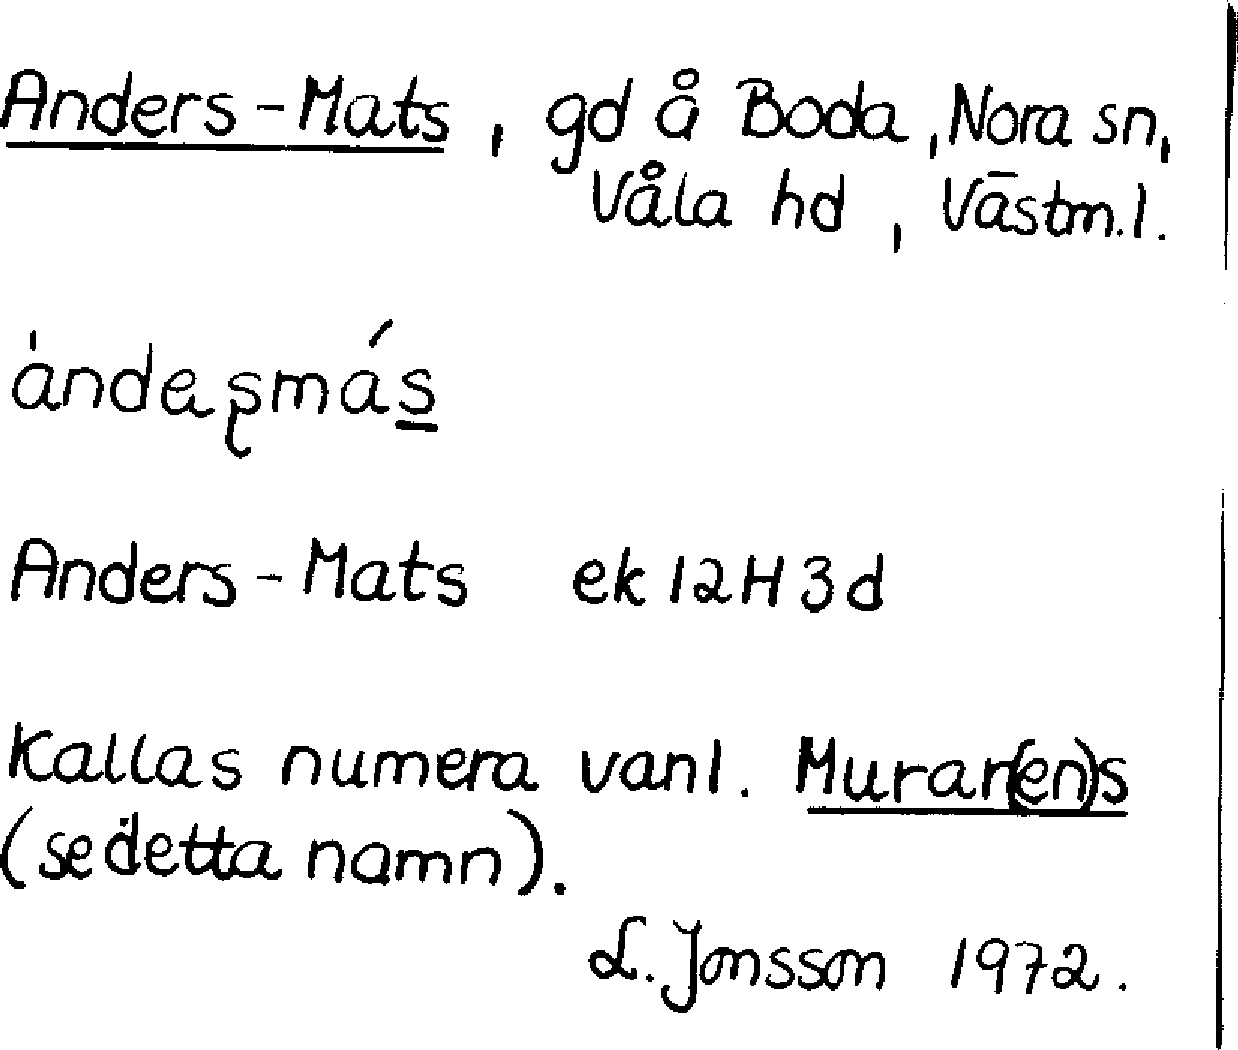 Anders-Mats, gd å Boda, Nora sn,
Våla hd, Västm.l.
ándeʂmás
Anders-Mats ek 12H3d
Kallas numera vanl. Murar(en)s
(se detta namn).
L. Jonsson 1972.